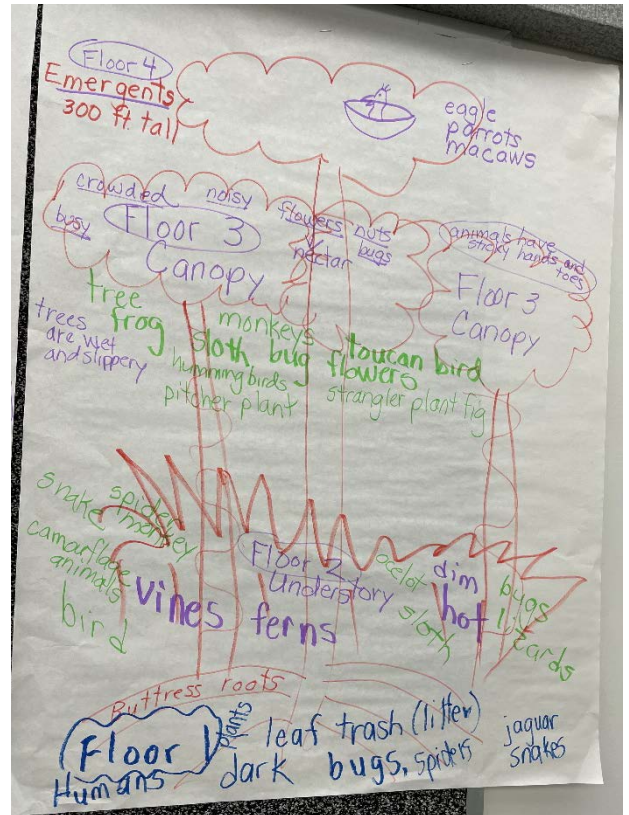 Floor 4
Emergents
300 ft. tall
eagle
parrots
macaws
crowded
noisy
busy
Floor 3
Canopy
flowers nuts
nectar bugs
animals have
sticky hands and
toes
Floor 3
Canopy
trees
are wet
and slippery
tree
frog
monkeys
sloth bug
humming birds
pitcher plant
toucan bird
flowers
strangler plant fig
snake
spider
monkey
camarflage
animals
bird
vines ferns
Floor 2
Understory
ocelot
sloth
dim
hot
bugs
lizards
Buttress roots
Floor 1
Humans
Plants
leaf trash (litter)
dark bugs, spiders
jaguar
snakes